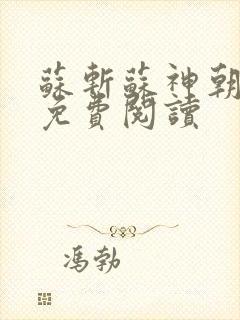 蘇斬蘇神朝
免費閱讀
馮勃